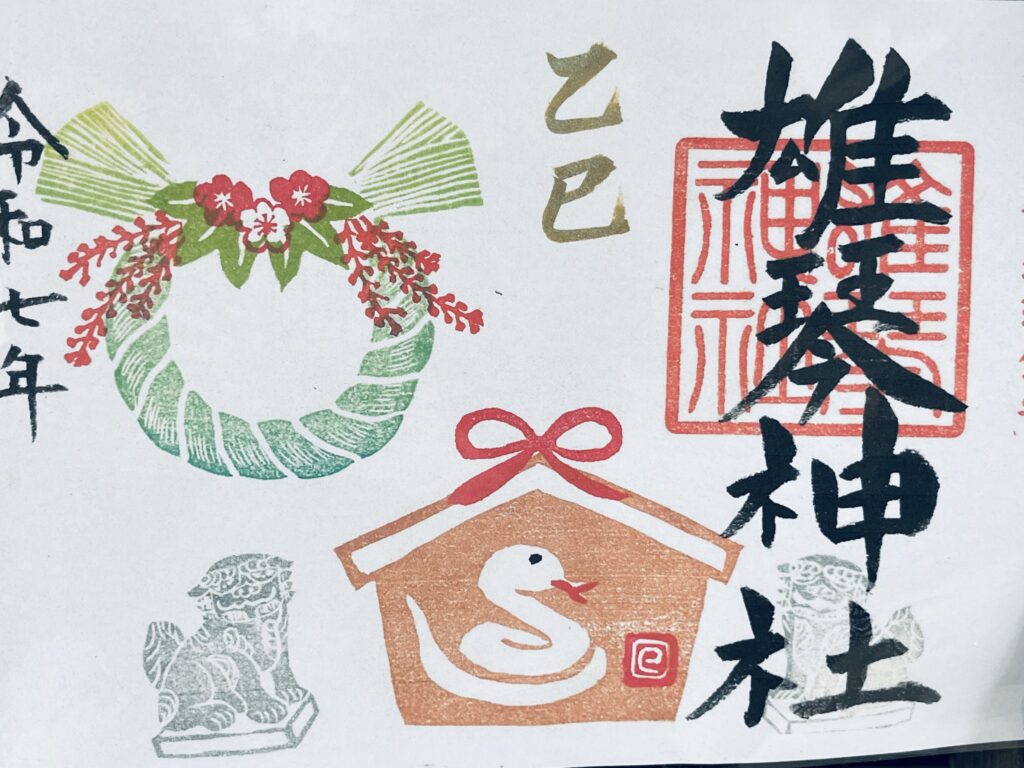 雄琴神社
雄琴神社
乙巳
巳
令和七年